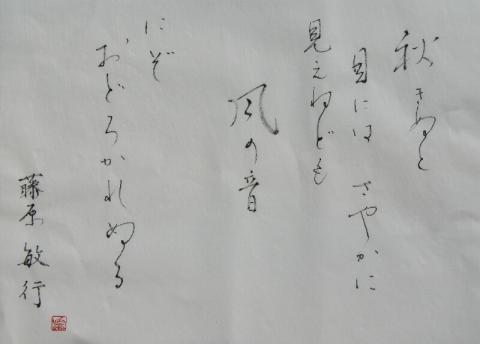 秋きぬと
目には さやかに
見えねども
風の音
にぞ
おどろかれぬる
藤原敏行